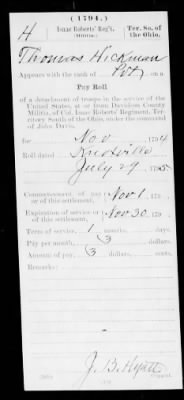 (1794.)
H
Isaac Roberts' Reg't,
(MILITIA.)
Ter. So. of
the Ohio.
Thomas Hickman
Appears with the rank of Pvt on a
Pay Roll
of a detachment of troops in the service of the
United States, as of from Davidson County
Militia, of Col. Isaac Roberts' Regiment, Ter-
ritory South of Ohio, under the command
of John Davis,
for Nov, 1794
Roll dated Knoxville
July 29, 1795
Commencement of pay
or of this settlement, Nov 1, 179
Expiration of service or
of this settlement, Nov 30, 179
Term of service, 1 months, days.
Pay per month, 3 dollars,
Amount of pay, 3 dollars, cents.
Remarks:
J. B. Hyatt